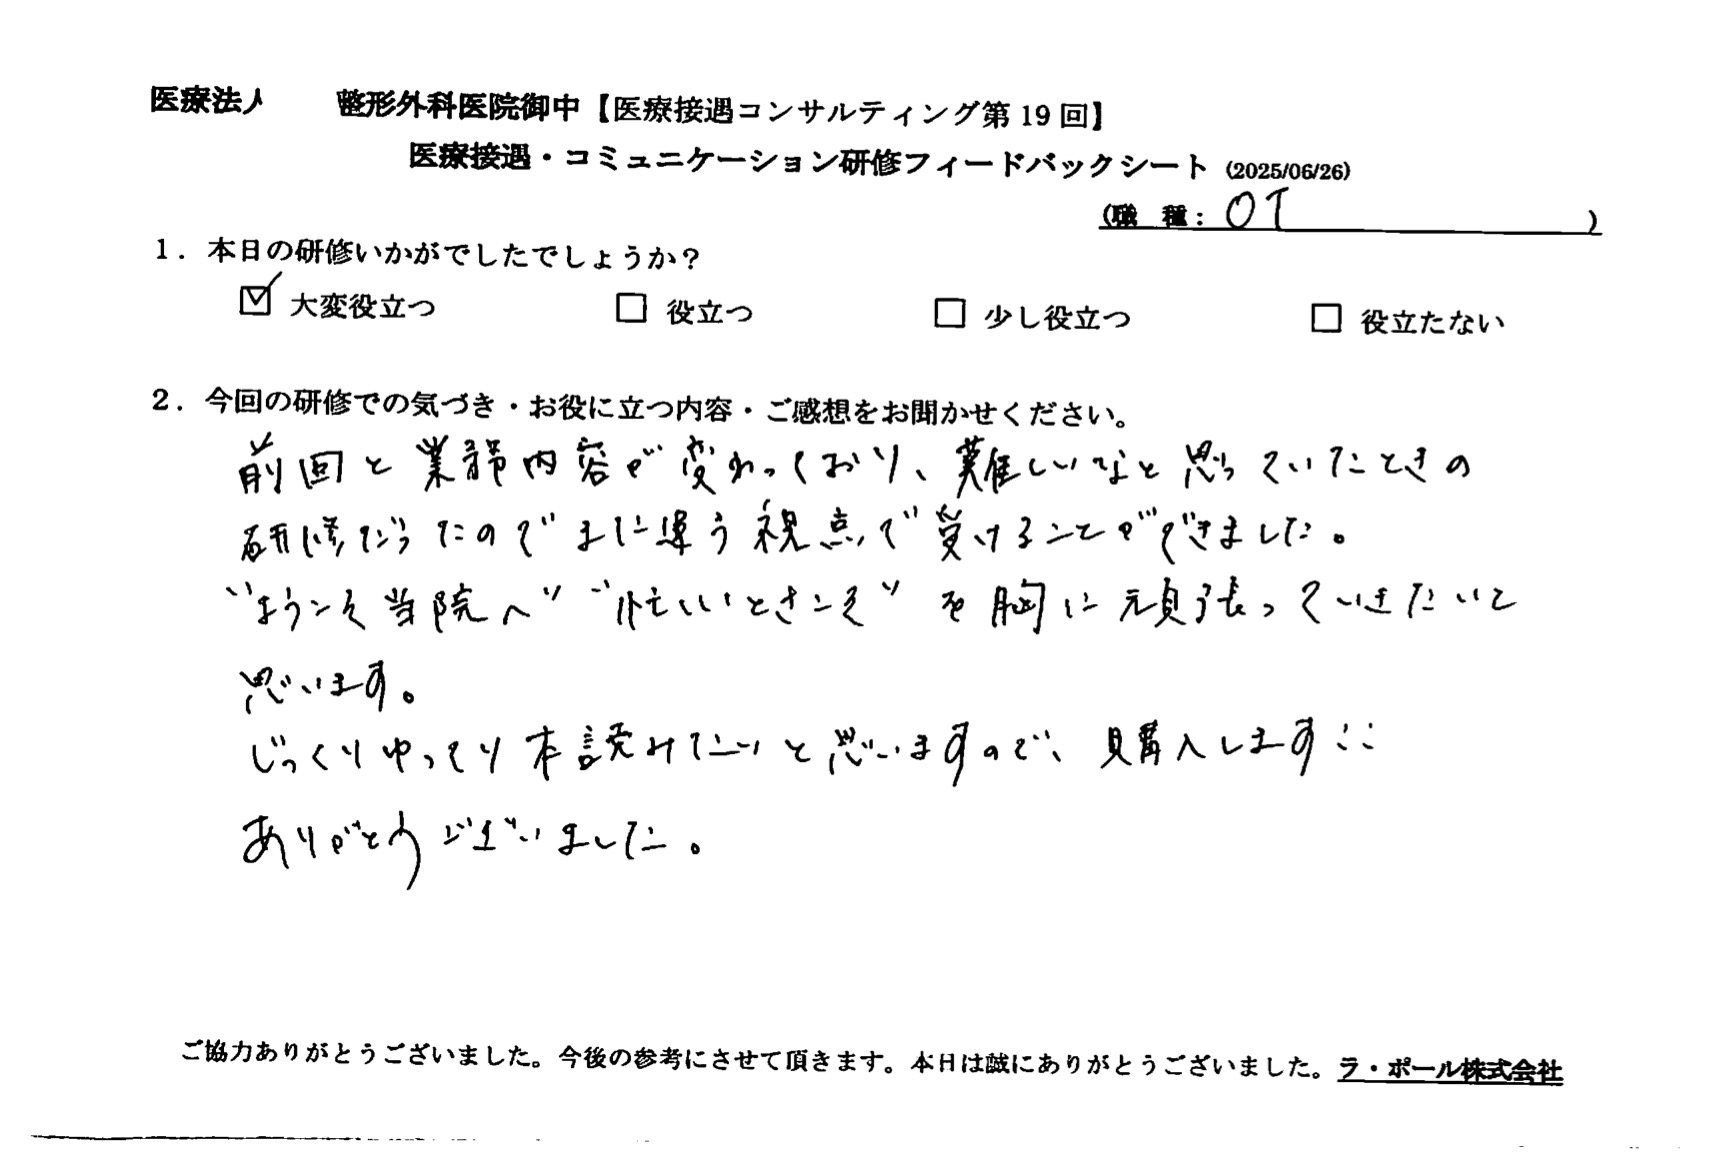 医療法人　　整形外科医院御中【医療接遇コンサルティング第19回】
医療接遇・コミュニケーション研修フィードバックシート (2025/06/26)
(職　種： OT )
１．本日の研修いかがでしたでしょうか？
☑ 大変役立つ　□ 役立つ　□ 少し役立つ　□ 役立たない
２．今回の研修での気づき・お役に立つ内容・ご感想をお聞かせください。
前回と業務内容が変わっており、難しいなと思っていたときの
研修だったのでまた違う視点で受けることができました。
"ようこそ当院へ" "忙しいときこそ" を胸に頑張っていきたいと
思います。
じっくりゆっくり本読みたいと思いますので、購入します!!
ありがとうございました。
ご協力ありがとうございました。今後の参考にさせて頂きます。本日は誠にありがとうございました。ラ・ポール株式会社